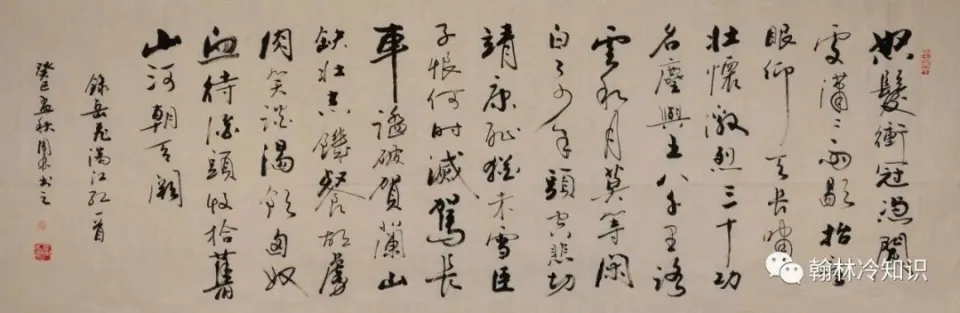 怒髮衝冠憑闌
處瀟〻雨歇抬望
眼仰天長嘯
壯懷激烈三十功
名塵與土八千里路
雲和月莫等闲
白了少年頭空悲切
靖康恥猶未雪臣
子恨何時滅駕長
車踏破賀蘭山
缺壯志饑餐胡虜
肉笑談渴飲匈奴
血待從頭收拾舊
山河朝天闕
錄岳飛滿江紅一首
癸巳孟秋書之
翰林冷知识